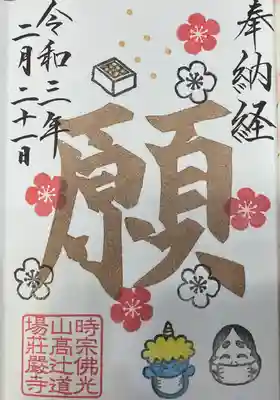 奉納経
願
令和三年
二月二十一日
時宗佛光
山高辻道
場荘嚴寺